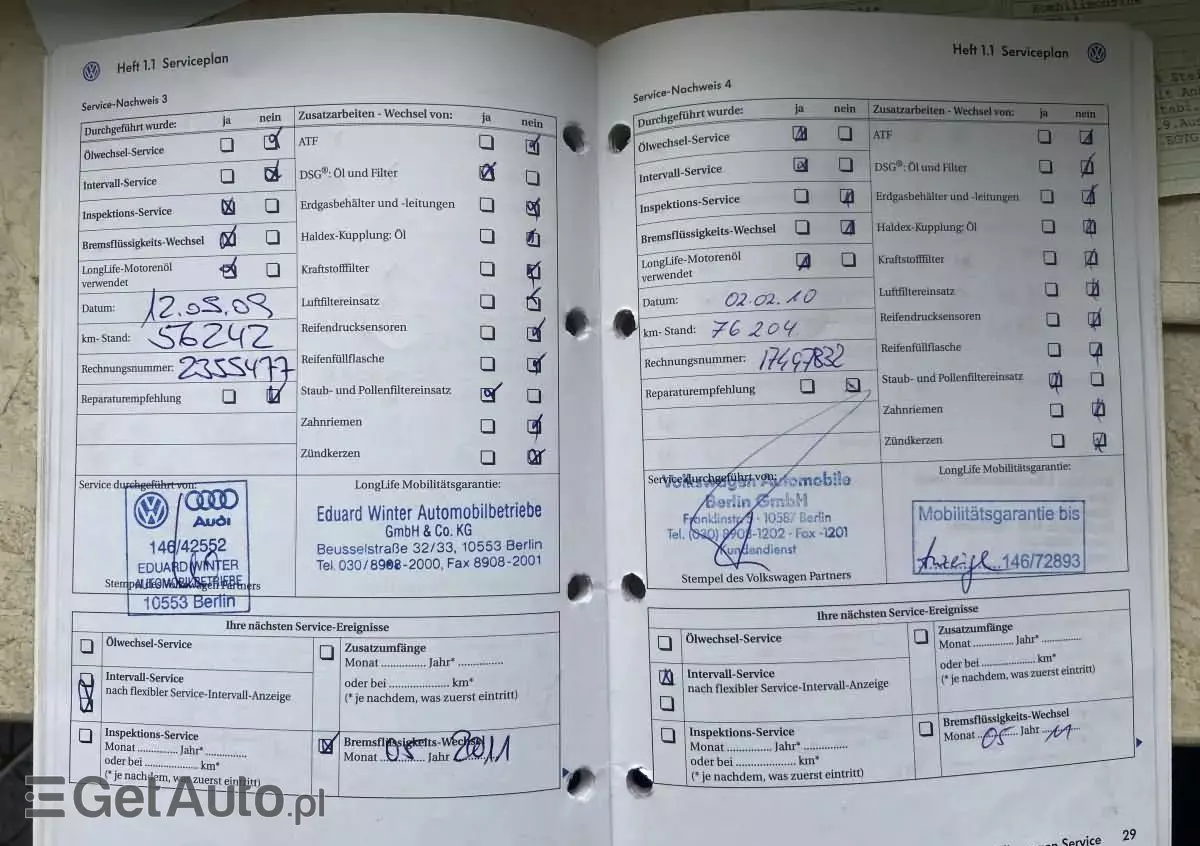 Heft 1.1 Serviceplan
Service-Nachweis 3
Durchgeführt wurde: ja nein
Ölwechsel-Service
Intervall-Service
Inspektions-Service
Bremsflüssigkeits-Wechsel
LongLife-Motorenöl
verwendet
Datum: 12.05.09
km- Stand: 56242
Rechnungsnummer: 2355477
Reparaturempfehlung
Zusatzarbeiten - Wechsel von: ja nein
ATF
DSG®: Öl und Filter
Erdgasbehälter und -leitungen
Haldex-Kupplung: Öl
Kraftstofffilter
Luftfiltereinsatz
Reifendrucksensoren
Reifenfüllflasche
Staub- und Pollenfiltereinsatz
Zahnriemen
Zündkerzen
Service durchgeführt von:
Audi
146/42552
EDUARD WINTER
AUTOMOBILBETRIEBE
Stempel des Volkswagen Partners
10553 Berlin
LongLife Mobilitätsgarantie:
Eduard Winter Automobilbetriebe
GmbH & Co. KG
Beusselstraße 32/33, 10553 Berlin
Tel. 030/8908-2000, Fax 8908-2001
Ihre nächsten Service-Ereignisse
Ölwechsel-Service
Intervall-Service
nach flexibler Service-Intervall-Anzeige
Inspektions-Service
Monat ............ Jahr* ............
oder bei .................... km*
(* je nachdem, was zuerst eintritt)
Zusatzumfänge
Monat ............ Jahr* ............
oder bei .................... km*
(* je nachdem, was zuerst eintritt)
Bremsflüssigkeits-Wechsel
Monat 05 Jahr 2011
Heft 1.1 Serviceplan
Service-Nachweis 4
Durchgeführt wurde: ja nein
Ölwechsel-Service
Intervall-Service
Inspektions-Service
Bremsflüssigkeits-Wechsel
LongLife-Motorenöl
verwendet
Datum: 02.02.10
km- Stand: 76 204
Rechnungsnummer: 17497832
Reparaturempfehlung
Zusatzarbeiten - Wechsel von: ja nein
ATF
DSG®: Öl und Filter
Erdgasbehälter und -leitungen
Haldex-Kupplung: Öl
Kraftstofffilter
Luftfiltereinsatz
Reifendrucksensoren
Reifenfüllflasche
Staub- und Pollenfiltereinsatz
Zahnriemen
Zündkerzen
Service durchgeführt von:
Volkswagen Automobile
Berlin GmbH
Franklinstr. - 10587 Berlin
Tel. (030) 8908-1202 - Fax -1201
Kundendienst
Stempel des Volkswagen Partners
LongLife Mobilitätsgarantie:
Mobilitätsgarantie bis
Anzeige 146/72893
Ihre nächsten Service-Ereignisse
Ölwechsel-Service
Intervall-Service
nach flexibler Service-Intervall-Anzeige
Inspektions-Service
Monat ............ Jahr* ............
oder bei .................... km*
(* je nachdem, was zuerst eintritt)
Zusatzumfänge
Monat ............ Jahr* ............
oder bei .................... km*
(* je nachdem, was zuerst eintritt)
Bremsflüssigkeits-Wechsel
Monat 05 Jahr 11
Service 29
GetAuto.pl